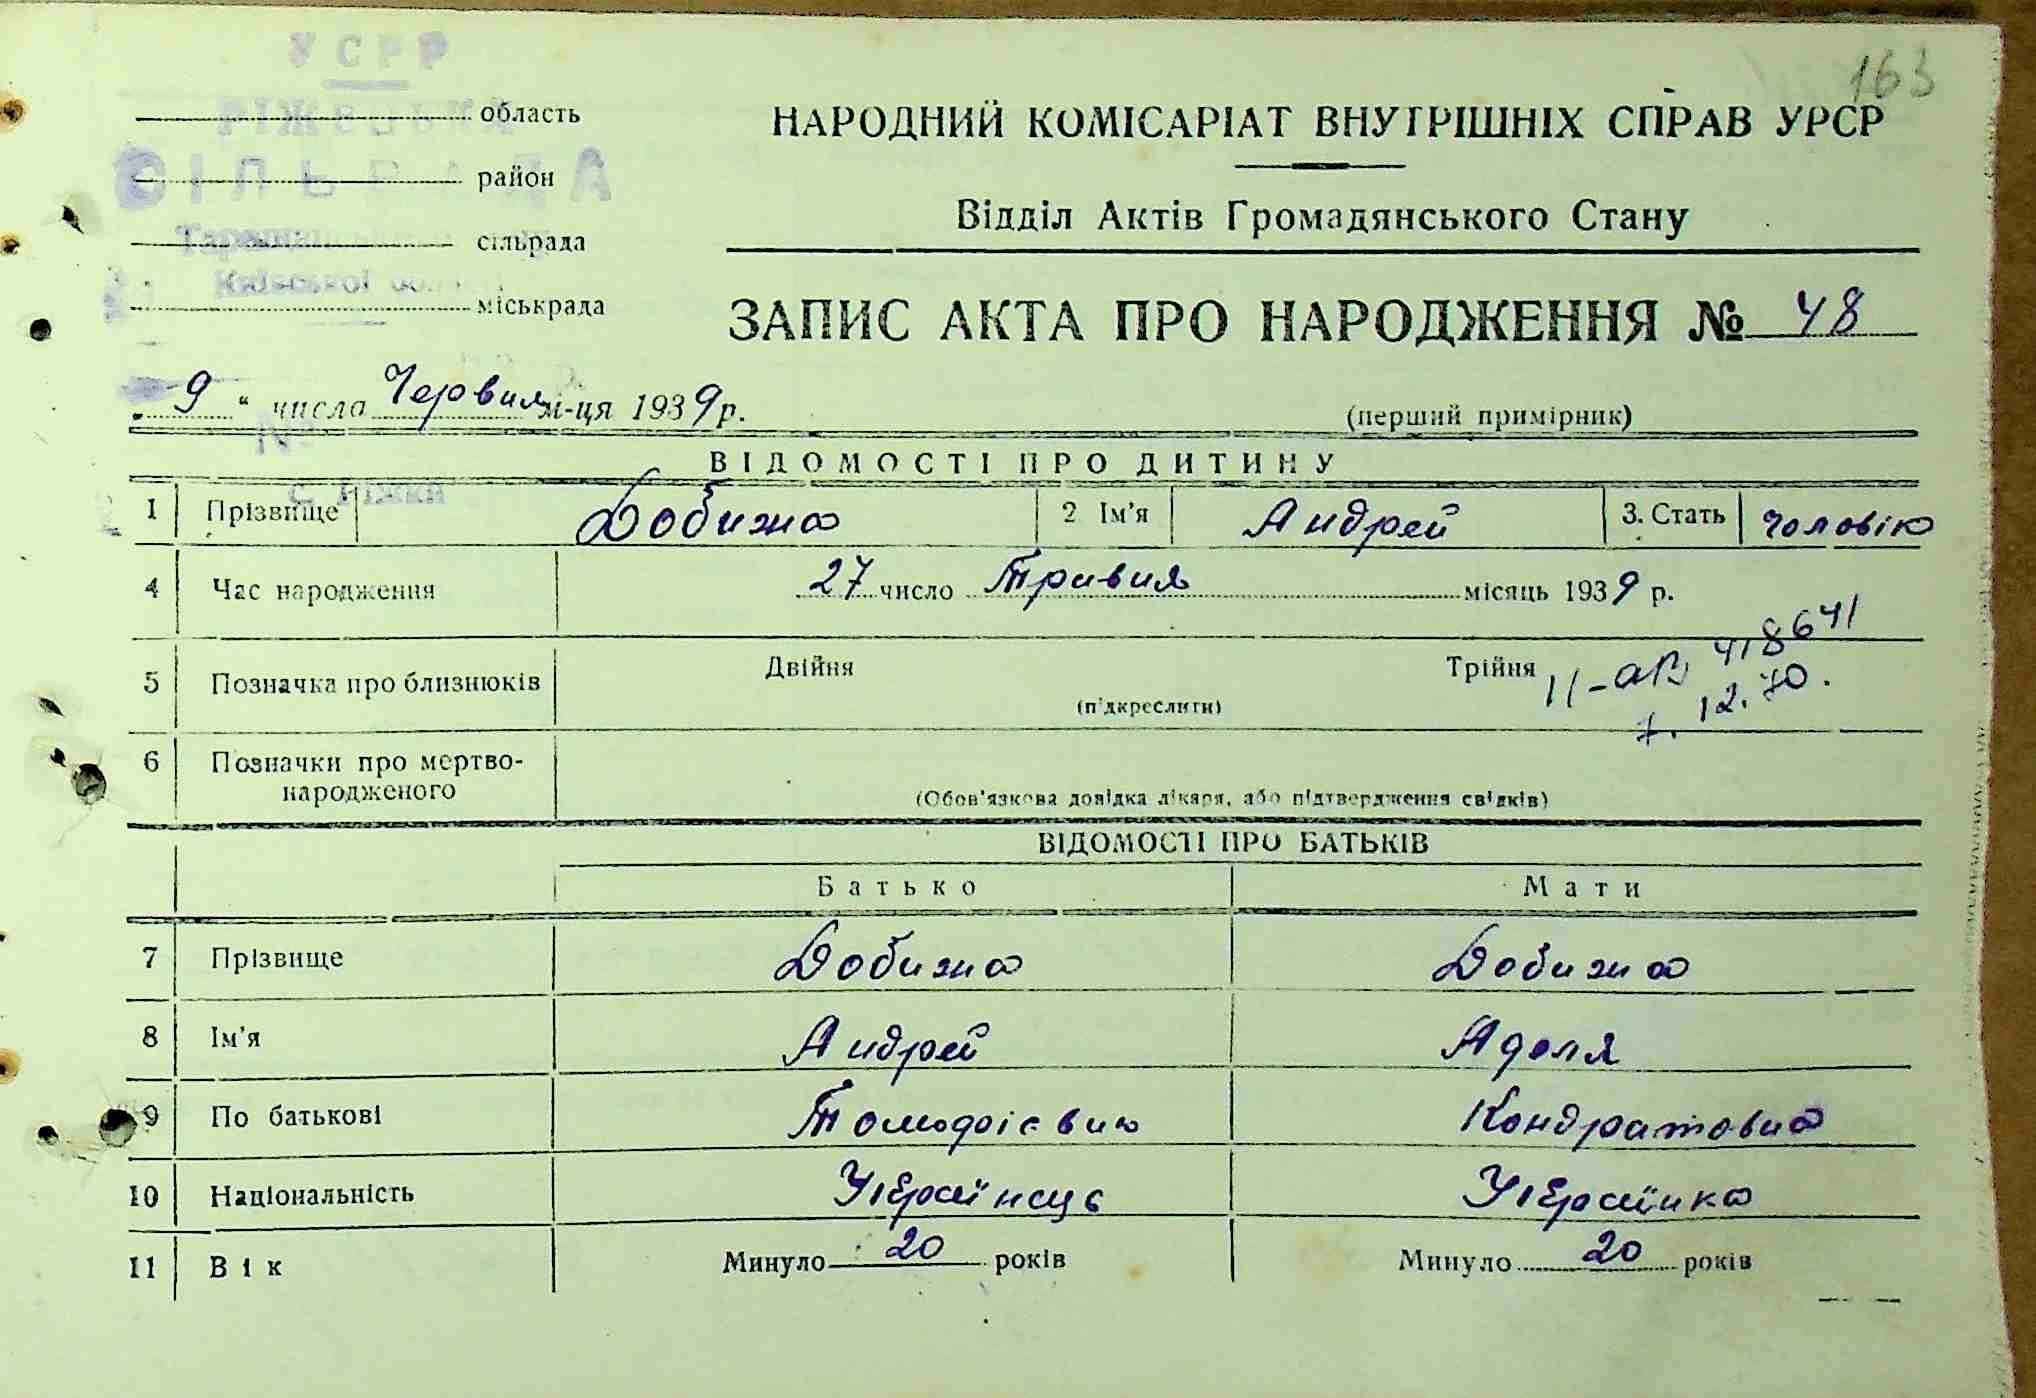 163
УСРР
РІЖЕЦЬКА
СІЛЬРАДА
Київської
с. Ріжки
область
район
сільрада
міськрада
НАРОДНИЙ КОМІСАРІАТ ВНУТРІШНІХ СПРАВ УРСР
Відділ Актів Громадянського Стану
ЗАПИС АКТА ПРО НАРОДЖЕННЯ № 48
„ 9 “ числа Червня м-ця 1939 р.
(перший примірник)
ВІДОМОСТІ ПРО ДИТИНУ
1 Прізвище Добижа 2 Ім'я Андрей 3. Стать чоловік
4 Час народження 27 число Травня місяць 1939 р.
5 Позначка про близнюків Двійня Трійня
(підкреслити)
II-АВ 418641
7. 12. 70.
6 Позначки про мертво-
народженого
(Обов'язкова довідка лікаря, або підтвердження свідків)
ВІДОМОСТІ ПРО БАТЬКІВ
Батько Мати
7 Прізвище Добижа Добижа
8 Ім'я Андрей Адоля
9 По батькові Кондратовна
10 Національність Українець Українка
11 Вік Минуло 20 років Минуло 20 років